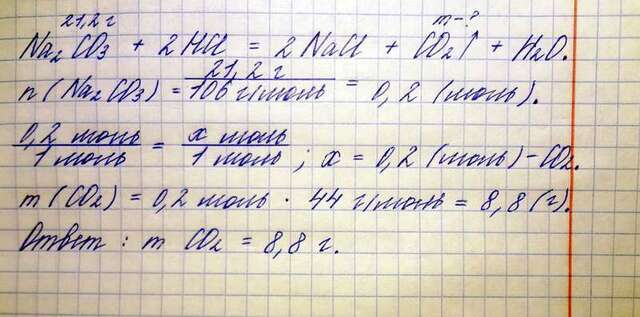 21,2 г m-?
Na2CO3 + 2HCl = 2NaCl + CO2↑ + H2O.
n (Na2CO3) = 21,2 г / 106 г/моль = 0,2 (моль).
0,2 моль / 1 моль = x моль / 1 моль ; x = 0,2 (моль) - CO2.
m (CO2) = 0,2 моль · 44 г/моль = 8,8 (г).
Ответ : m CO2 = 8,8 г.